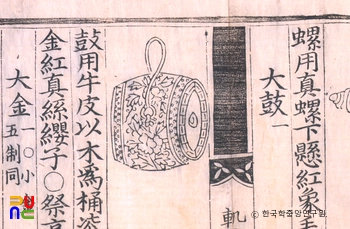 螺用真螺下懸紅象
大鼓一
軌
鼓用牛皮以木爲桶漆
金紅真絲纓子○祭
大金一○小
五制同
© 한국학중앙연구원